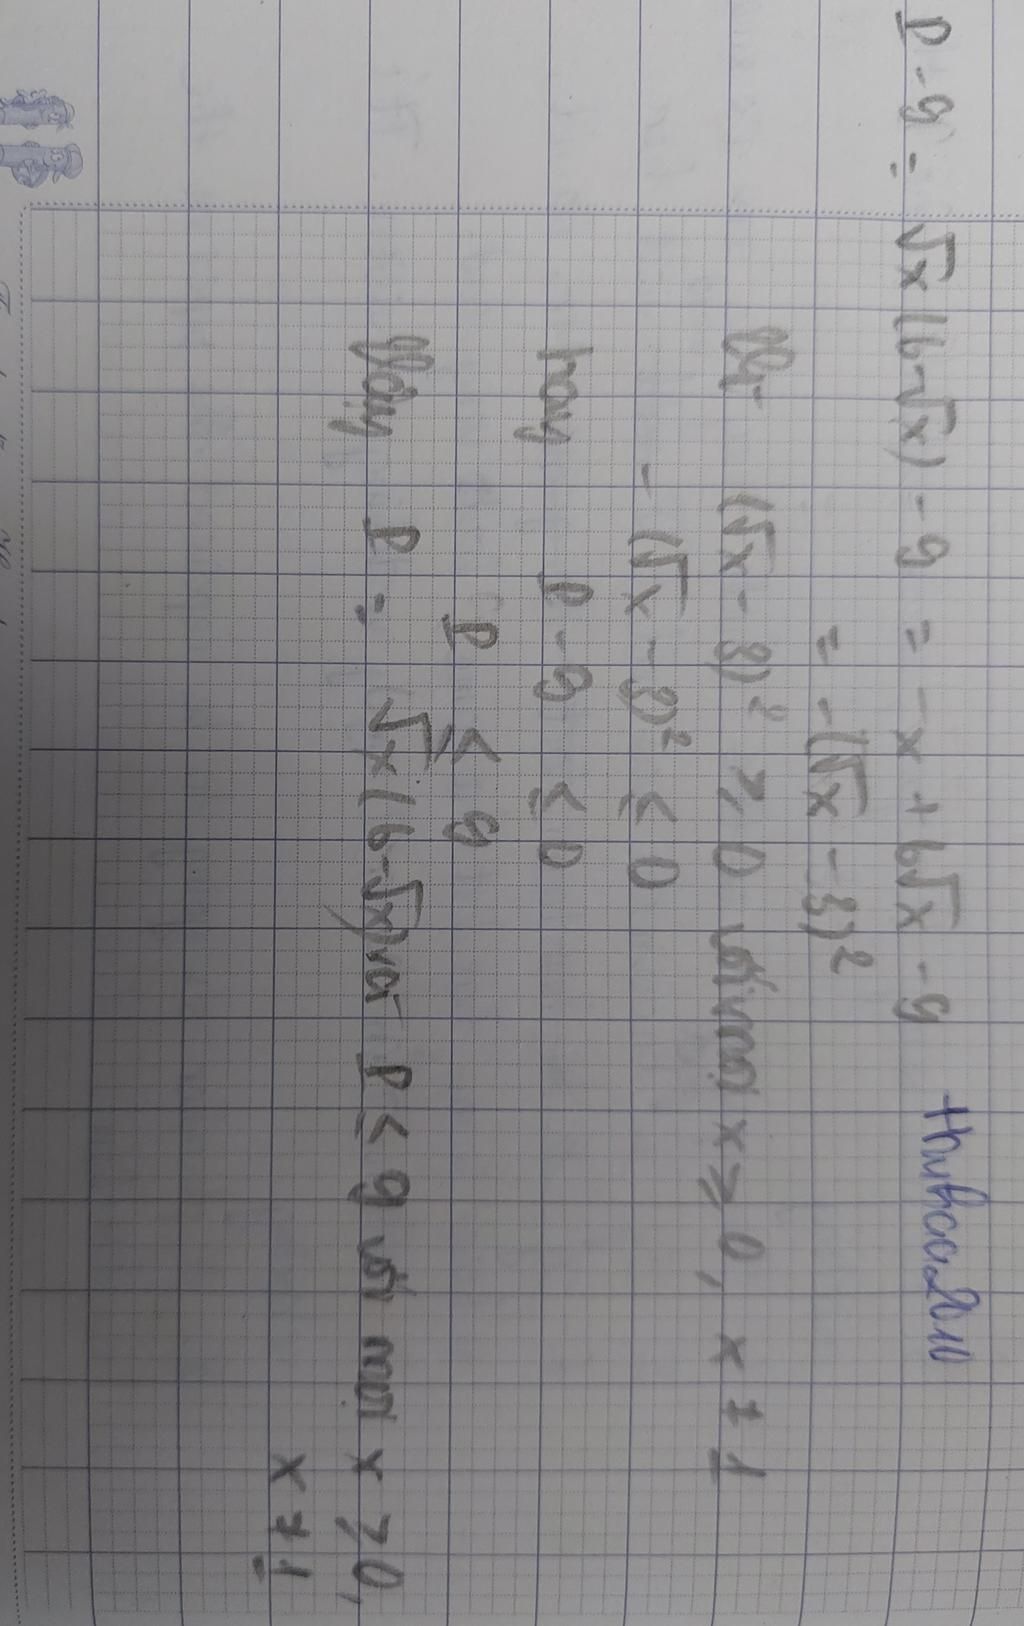 P - 9 = √x(6-√x) - 9 = -x + 6√x - 9 thuhaa2010
= -(√x - 3)²
Vì (√x - 3)² ≥ 0 với mọi x ≥ 0, x ≠ 1
- (√x - 3)² ≤ 0
hay P - 9 ≤ 0
P ≤ 9
Vậy P = √x(6-√x) và P ≤ 9 với mọi x ≥ 0,
x ≠ 1